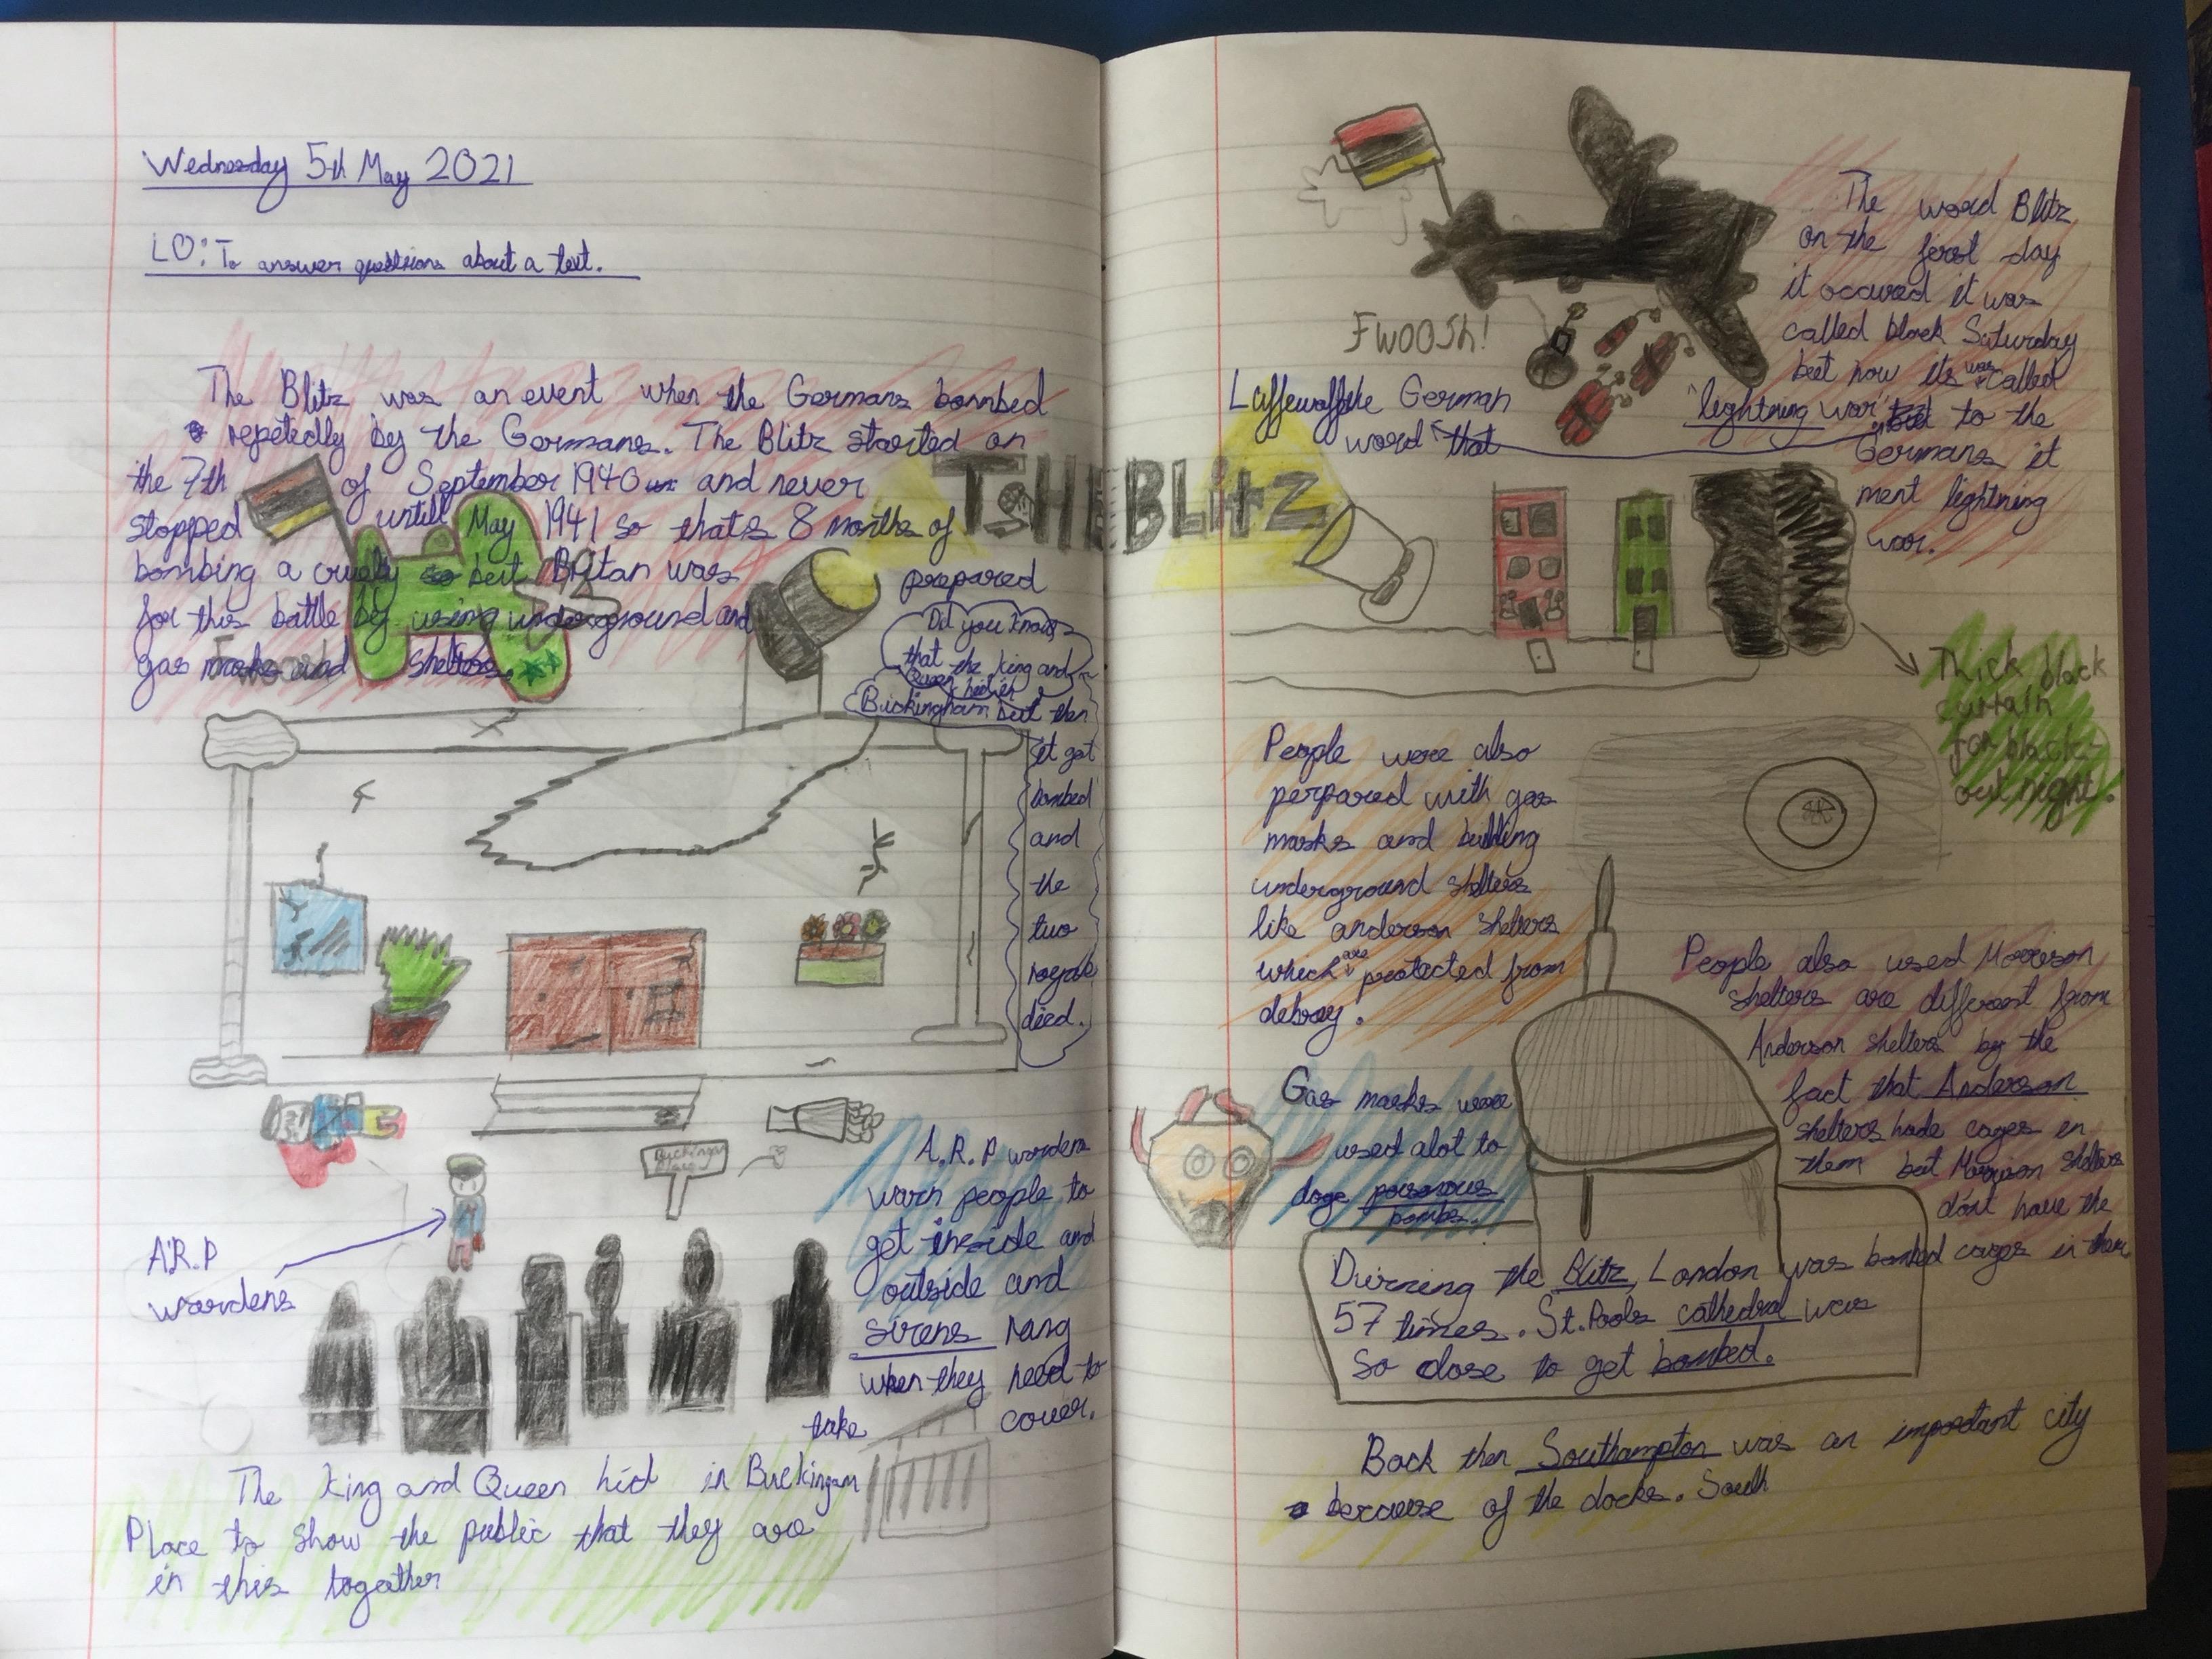 Wednesday 5th May 2021
LO: To answer questions about a text.
The Blitz was an event when the Germans bombed
repetedly by the Germans. The Blitz started on
the 7th of September 1940 and never
stopped untill May 1941 so thats 8 months of
bombing a cruely but Britan was prepared
for this battle by using underground and
gas masks and shelters.
Did you know
that the king and
Queen hid in
Buckingham but then
it got
bombed
and
the
two
royals
died.
Buckingham
A.R.P
wardens
A.R.P wardens
warn people to
get inside and
outside and
sirens rang
when they need to
take cover.
The King and Queen hid in Buckingam
Place to show the public that they are
in this together
THE BLitZ
FWOOSH!
The word Blitz
on the first day
it occured it was
called black Saturday
but now its was called
"lightning war" but to the
Germans it
ment lightning
war.
Luffewaffe the German
word that
Thick black
curtain
for black-
out night.
People were also
perpared with gas
masks and building
underground shelters
like anderson shelters
which are protected from
debray.
People also used Morrison
shelters are different from
Anderson shelters by the
fact that Anderson
shelters hade cages in
them but Morrison shelters
dont have the
cages in them
Gas masks were
used alot to
doge poisonous
bombs.
Durning the Blitz, London was bombed
57 times. St. Pools cathedral was
so close to get bombed.
Back then Southampton was an important city
because of the docks. South